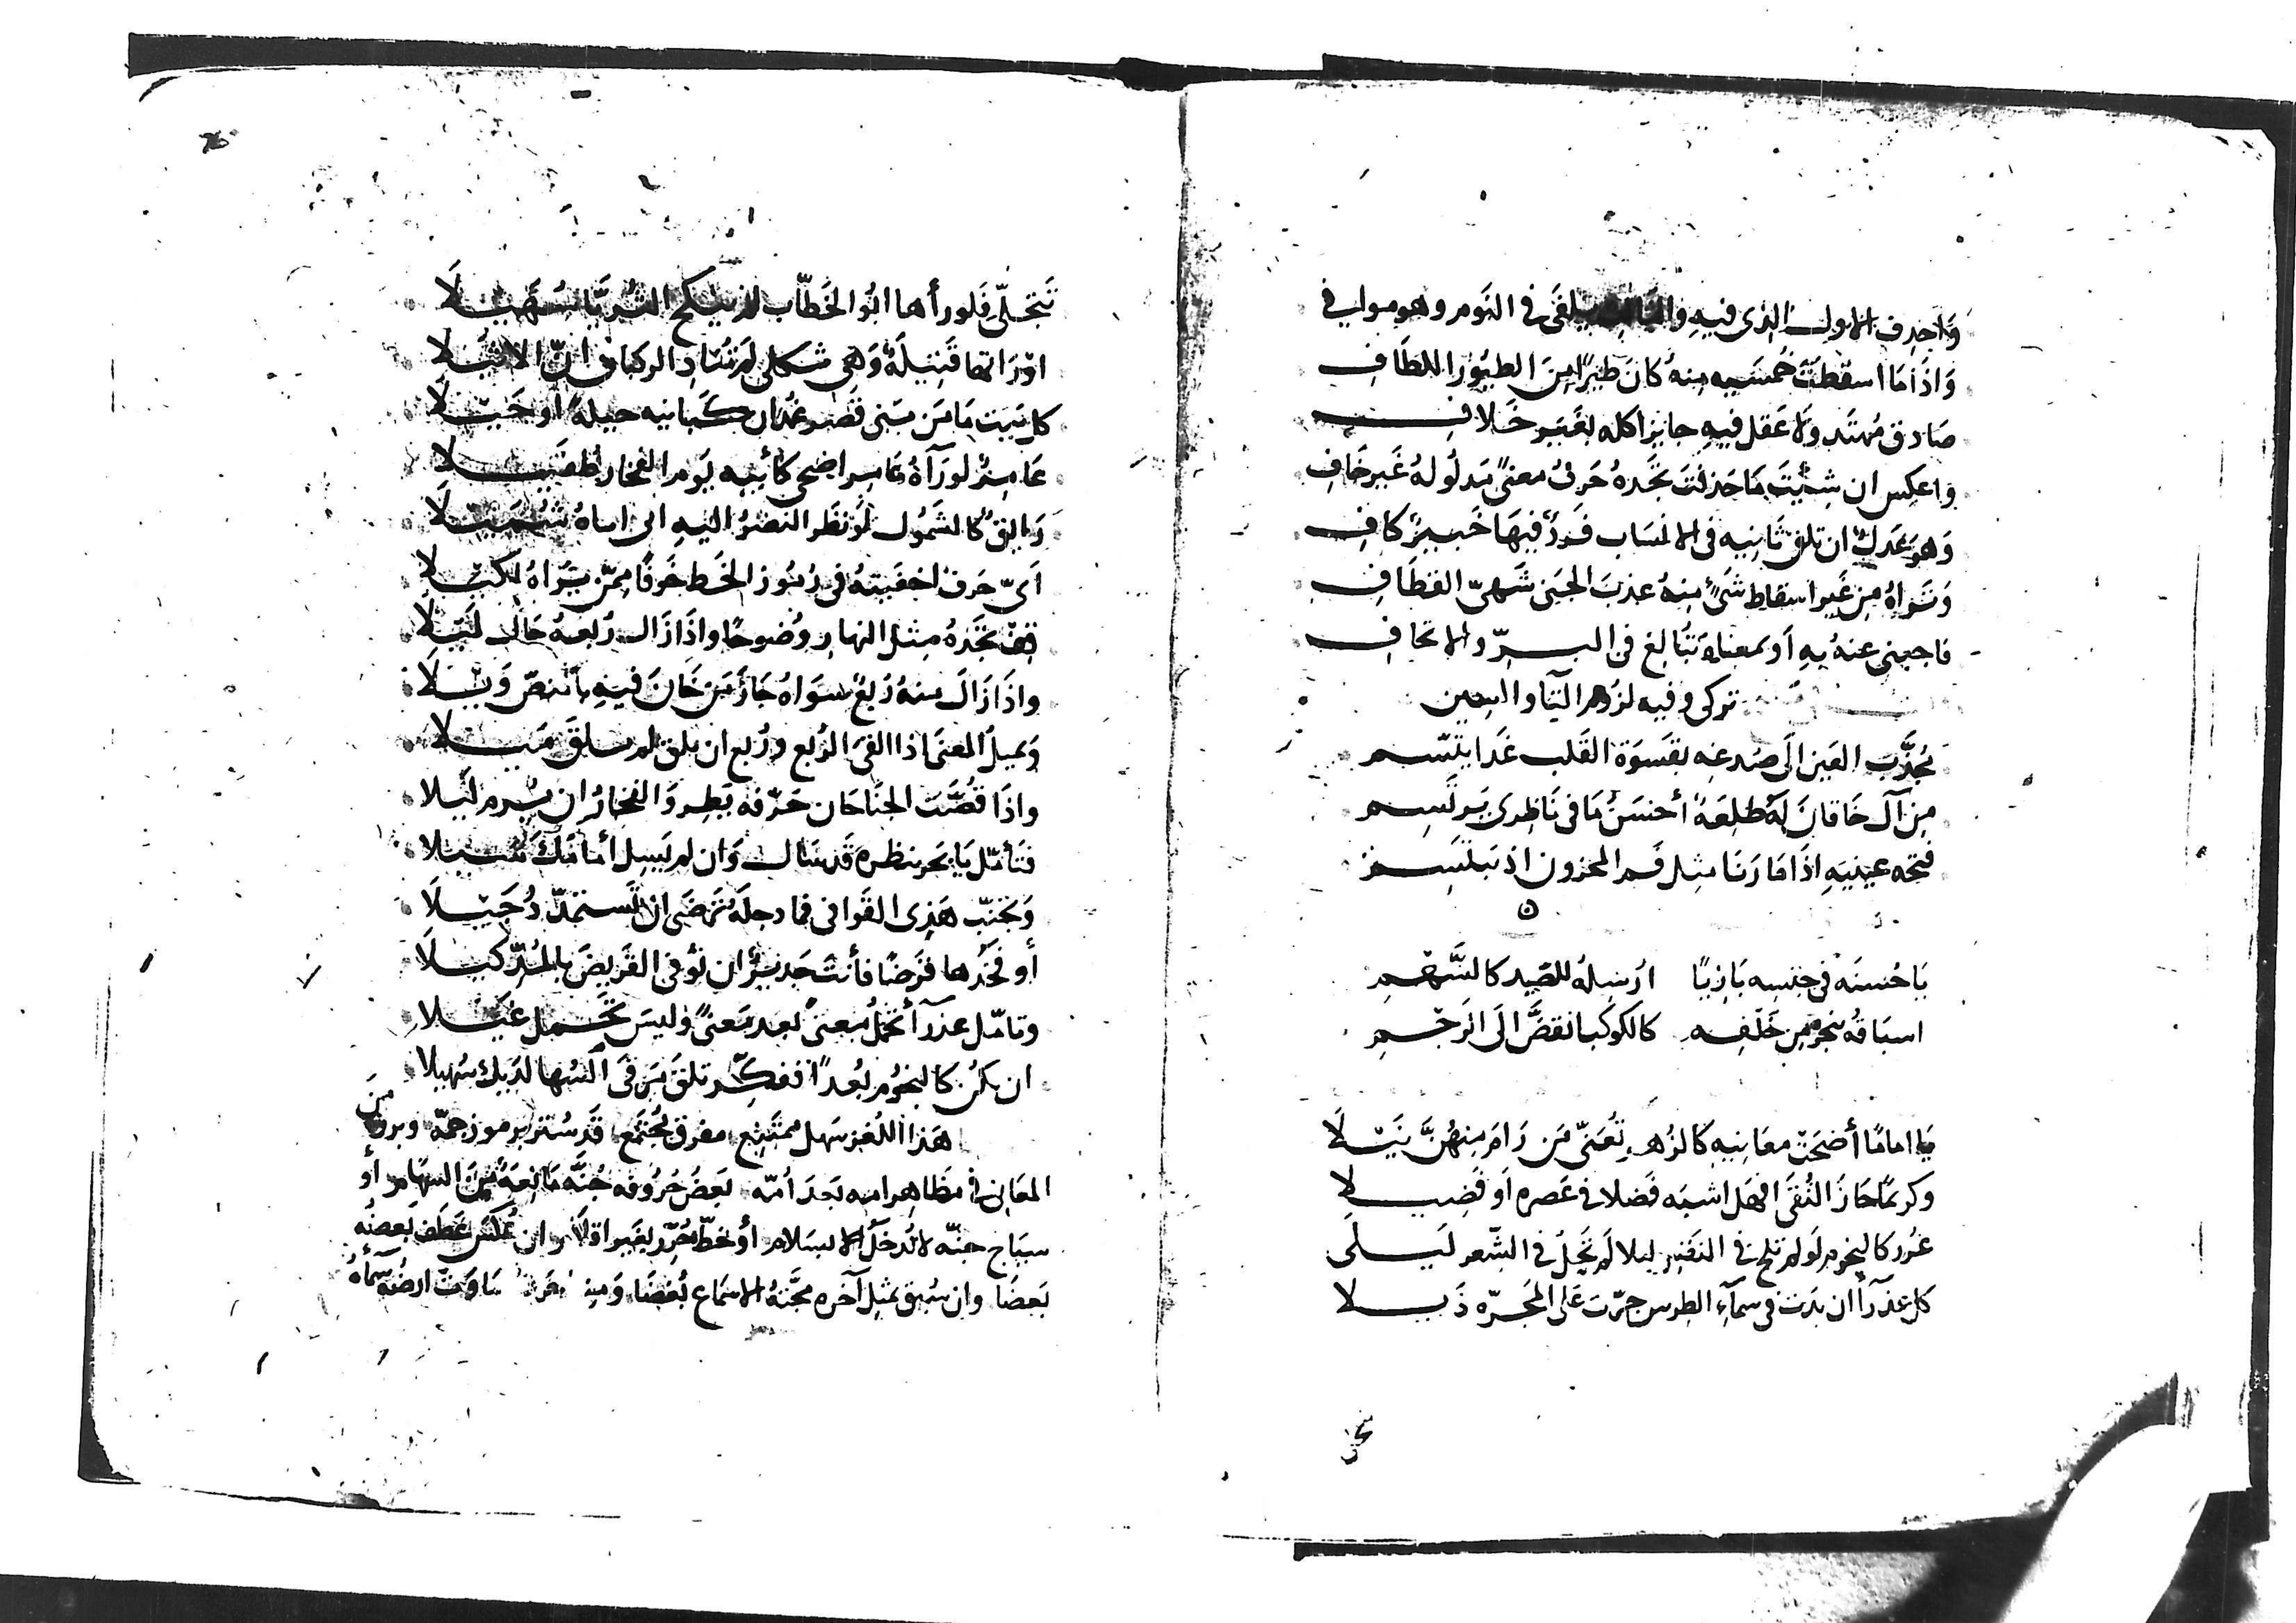 واحذف الاول الذى فيه يلقى فى النوم وهو موافى
وَاذَا مَا اسقطتَ خُمسَيه مِنهُ كانَ طيرًا مِنَ الطيُور اللطَافِ
صَادق مُهتَد ولا عَقل فيهِ جايز اكله بغَير خَلافِ
واعكِس ان شِئتَ مَا حَذفتَ تجَدهُ حَرفُ معنىً مَدلُولهُ غَير خَافِ
وَهوَ عَدلٌ ان تلق ثَانيه فى الانسَاب فَردٌ فيهَا خَبيرٌ كافِ
وَتَراهُ مِن غَير اسقاط شَئٍ مِنهُ عذبَ الجَنى شَهىّ القطَافِ
فاجبنى عنهُ بِهِ اَو بمعناهُ تُبالغ فى البِرّ والاتحافِ
تركى وفيه لزوم التَّا والسين
يُجذّب القين الَى صُدغِه بقَسوَة القَلب غَدا يتّسم
مِن آل خَاقانَ لَهُ طلعَة أحسَنُ مَا فى نَاظرى يَرتَسِم
فتحه عينيهِ اذَا مَا رَنَا مثل فَم المحزون اذ يبتَسِم
ه
يَا حُسنَه فى جنسِه بَازيًا ارسِلهُ للصَيد كالسَّهمِ
اسبَاقهُ ينجو مِن خَلفِه كالكوكَب انقضَّ الَى الرَجمِ
يَا امامًا أضحَت معَانيهِ كالزُهرِ تُعَنّى مَن رَامَ مِنهُنَّ نَيلَا
وكريمًا حَازَ التُقَى اشبَه فَضلا فى عَصره اَو فُضيلا
غُرر كالنجوم لَو لم تلح فى ليلا لَم تَجلُ فى الشّعر لَيلى
كل عَذرآ ان بَدَت فى سمآءِ الطِرس جرّت عَلى المَجَرّه ذَيلا
نَتجلّى فَلو رأها ابُو الخَطّاب لم ينكح الثُريّا سُهَيلَا
اوْ رَاتها قَتِيلَةٌ وَهِى ثكلى لم تُنادِ الركبان انّ الاثَيلا
كل بَيت مَا مَن بَنى قصر غُمدان كَبانيه حيلةً اَو حَيلا
عَامِرٌ لو رَآهُ عَامِر اضحى كأبيهِ يَوم الفخار طُفَيلا
رَايقٌ كالشَمُول لَو نظر النضرُ اليهِ اباهُ شُمَيلَا
اَىّ حَرف اخفَيتهُ فى رُمُوز الخَط خَوفًا مِمّن يَرَاهُ لكيلا
قِف تجَدهُ مِثل النهار وُضوحًا واذَا زَال رُبعهُ خَال لَيلا
واذَا زَالَ مِنهُ رُبعٌ سوَاهُ جَاز مَن خَانَ فيهِ بالنصّ وَيلَا
وَيميلُ المعنَى اذا القىَ الرُبع ورُبع ان يلق لم تلقَ مَيلا
واذَا قُصّت الجنَاحَان حَرّفه يَطِر وَالفخارُ ان يُرم لَيلا
فَتأمّل يَا بَحر بنظره قَد سَال وَان لم يَسِل أمامَكَ سَيلا
وَتجنّب هَذِى القَوافى فما دجلَةُ تَرضَى اَن تَستَمدّ دُجَيلَا
أو فَخُذها قرَضًا فأنتَ جَديرٌ ان تُوفى القَريضَ بالمُدّ كيلَا
وتامّل عذرَآ تحملُ معنىً بَعد مَعنىً وَليسَ تحَمل غَيلا
ان يَكنُ كالنجوُم بُعدًا ففكّر تلقَ مَرقَى السُها لدَيك سُهَيلا
هَذا اللُغز سَهل مُمتَنِع مفرق مُجتَمع قَد سُتر برموز جمّة وبرز منَ
المعَانى فى مظاهر امه بَعدَ اُمّه بَعضُ حُرُوفه جُنَّه مَانِعَة مِنَ السِهَام أو
سيَاج جنّه لا تُدخَل الا بسَلام أو خطّ حُرِّر بغَير اقلام ان عُكسَ عَطَف بَعضُه
بَعضَا وان سُبق بمثِل آخره مجَّتهُ الاسمَاع بُغضًا وَمِن سَاوَت ارضُه سَمآءَهُ